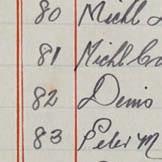 80 Michl
81 Michl Co
82 Denis
83 Peter M